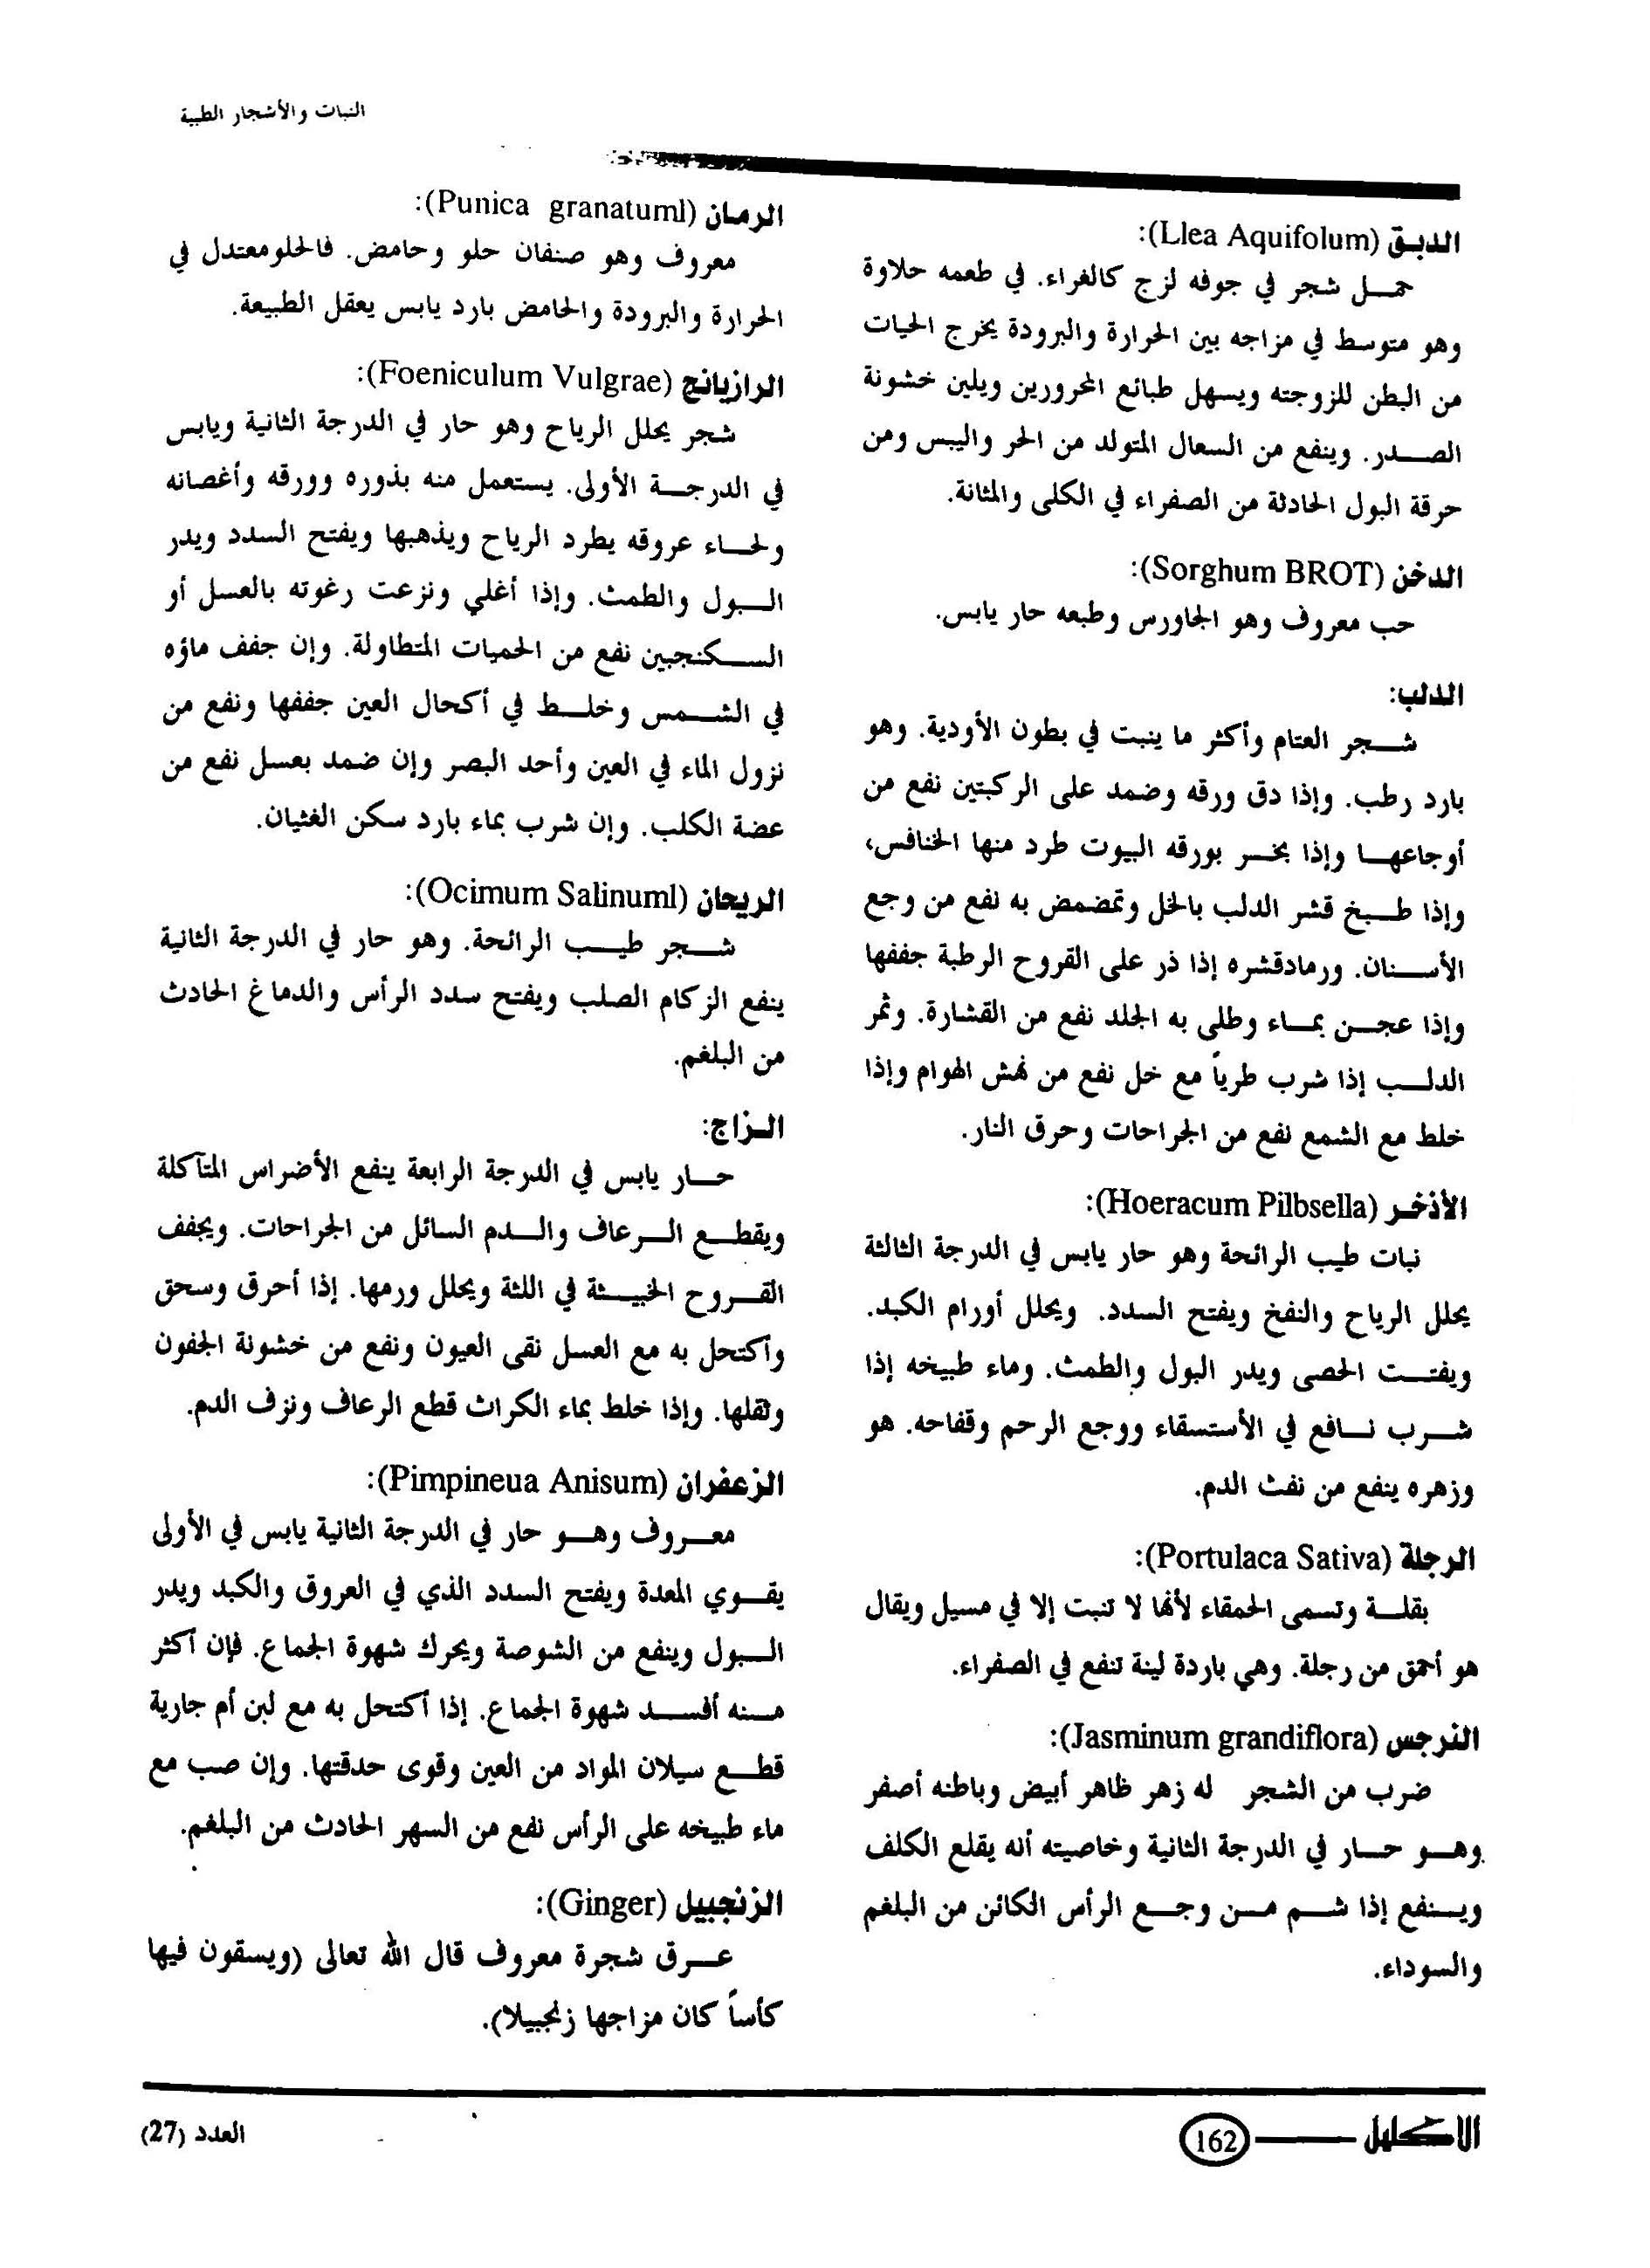 النبات والأشجار الطبية
الدبق (Llea Aquifolum):
حمل شجر في جوفه لزج كالغراء. في طعمه حلاوة
وهو متوسط في مزاجه بين الحرارة والبرودة يخرج الحيات
من البطن للزوجته ويسهل طبائع المحرورين ويلين خشونة
الصدر. وينفع من السعال المتولد من الحر واليبس ومن
حرقة البول الحادثة من الصفراء في الكلى والمثانة.
الدخن (Sorghum BROT):
حب معروف وهو الجاورس وطبعه حار يابس.
الدلب:
شجر العتام وأكثر ما ينبت في بطون الأودية. وهو
بارد رطب. وإذا دق ورقه وضمد على الركبتين نفع من
أوجاعها وإذا بخر بورقه البيوت طرد منها الخنافس،
وإذا طبخ قشر الدلب بالخل وتمضمض به نفع من وجع
الأسنان. ورمادقشره إذا ذر على القروح الرطبة جففها
وإذا عجن بماء وطلي به الجلد نفع من القشارة. وثمر
الدلب إذا شرب طرياً مع خل نفع من نهش الهوام وإذا
خلط مع الشمع نفع من الجراحات وحرق النار.
الأذخر (Hoeracum Pilbsella):
نبات طيب الرائحة وهو حار يابس في الدرجة الثالثة
يحلل الرياح والنفخ ويفتح السدد. ويحلل أورام الكبد.
ويفتت الحصى ويدر البول والطمث. وماء طبيخه إذا
شرب نافع في الأستسقاء ووجع الرحم وقفاحه. هو
وزهره ينفع من نفث الدم.
الرجلة (Portulaca Sativa):
بقلة وتسمى الحمقاء لأنها لا تنبت إلا في مسيل ويقال
هو أحمق من رجلة. وهي باردة لينة تنفع في الصفراء.
النرجس (Jasminum grandiflora):
ضرب من الشجر له زهر ظاهر أبيض وباطنه أصفر
وهو حار في الدرجة الثانية وخاصيته أنه يقلع الكلف
وينفع إذا شم من وجع الرأس الكائن من البلغم
والسوداء.
الرمان (Punica granatuml):
معروف وهو صنفان حلو وحامض. فالحلومعتدل في
الحرارة والبرودة والحامض بارد يابس يعقل الطبيعة.
الرازيانج (Foeniculum Vulgrae):
شجر يحلل الرياح وهو حار في الدرجة الثانية ويابس
في الدرجة الأولى. يستعمل منه بذوره وورقه وأغصانه
ولحاء عروقه يطرد الرياح ويذهبها ويفتح السدد ويدر
البول والطمث. وإذا أغلي ونزعت رغوته بالعسل أو
السكنجبين نفع من الحميات المتطاولة. وإن جفف ماؤه
في الشمس وخلط في أكحال العين جففها ونفع من
نزول الماء في العين وأحد البصر وإن ضمد بعسل نفع من
عضة الكلب. وإن شرب بماء بارد سكن الغثيان.
الريحان (Ocimum Salinuml):
شجر طيب الرائحة. وهو حار في الدرجة الثانية
ينفع الزكام الصلب ويفتح سدد الرأس والدماغ الحادث
من البلغم.
الزاج:
حار يابس في الدرجة الرابعة ينفع الأضراس المتآكلة
ويقطع الرعاف والدم السائل من الجراحات. ويجفف
القروح الخبيثة في اللثة ويحلل ورمها. إذا أحرق وسحق
وأكتحل به مع العسل نقى العيون ونفع من خشونة الجفون
وثقلها. وإذا خلط بماء الكراث قطع الرعاف ونزف الدم.
الزعفران (Pimpineua Anisum):
معروف وهو حار في الدرجة الثانية يابس في الأولى
يقوي المعدة ويفتح السدد الذي في العروق والكبد ويدر
البول وينفع من الشوصة ويحرك شهوة الجماع. فإن أكثر
منه أفسد شهوة الجماع. إذا أكتحل به مع لبن أم جارية
قطع سيلان المواد من العين وقوى حدقتها. وإن صب مع
ماء طبيخه على الرأس نفع من السهر الحادث من البلغم.
الزنجبيل (Ginger):
عرق شجرة معروف قال الله تعالى (ويسقون فيها
كأساً كان مزاجها زنجبيلا).
الاكليل 162
العدد (27)